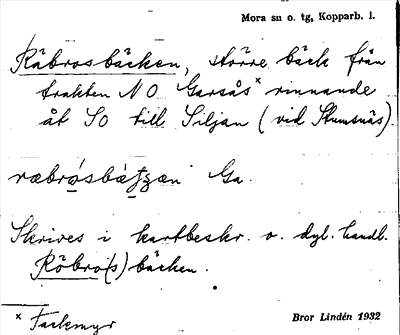 Mora sn o. tg, Kopparb. l.
Räbrosbäcken, större bäck från
trakten NO Garsås× rinnande
åt SO till Siljan (vid Stumsnäs).
Ga.
Skrives i kartbeskr. o. dyl. handl.
Röbro(s)bäcken.
Bror Lindén 1932
× Tackmyr